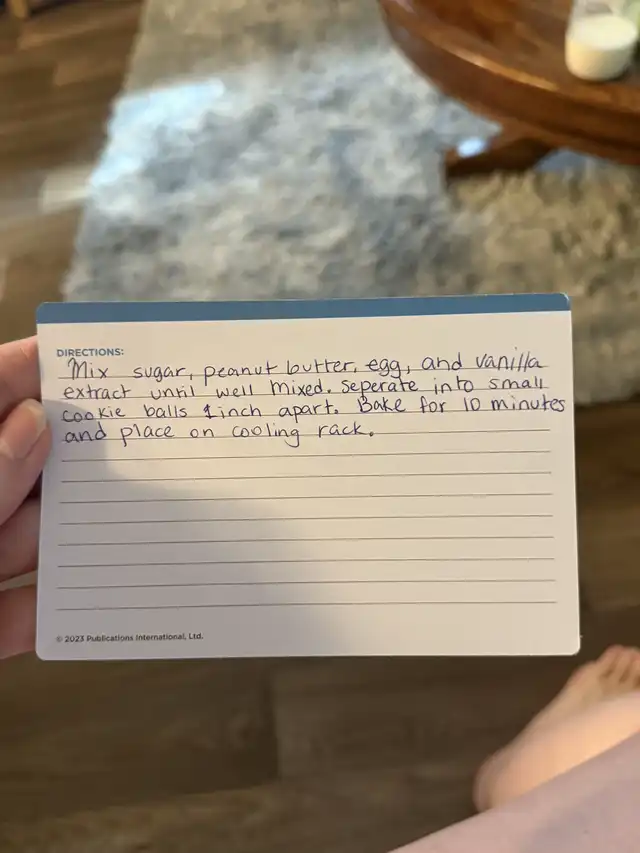 DIRECTIONS:
Mix sugar, peanut butter, egg, and vanilla
extract until well mixed. Seperate into small
cookie balls 1 inch apart. Bake for 10 minutes
and place on cooling rack.
© 2023 Publications International, Ltd.